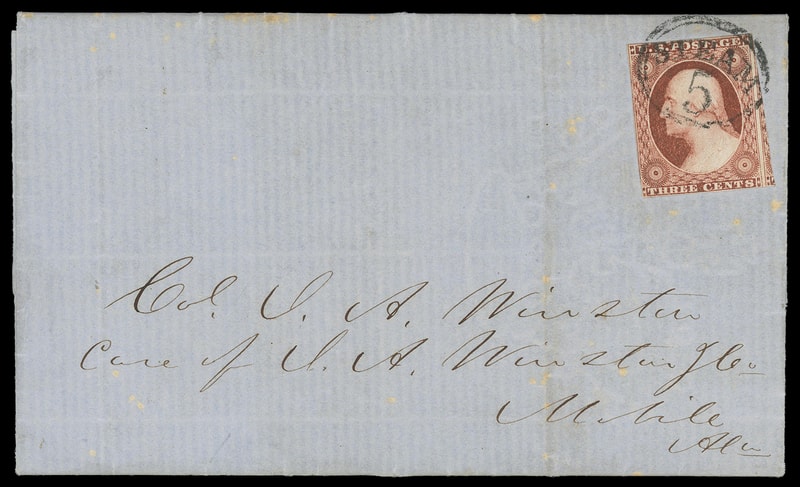 U.S. POSTAGE
STEAM
5
THREE CENTS
Col. J. A. Winston
Care of J. A. Winston & Co
Mobile
Ala